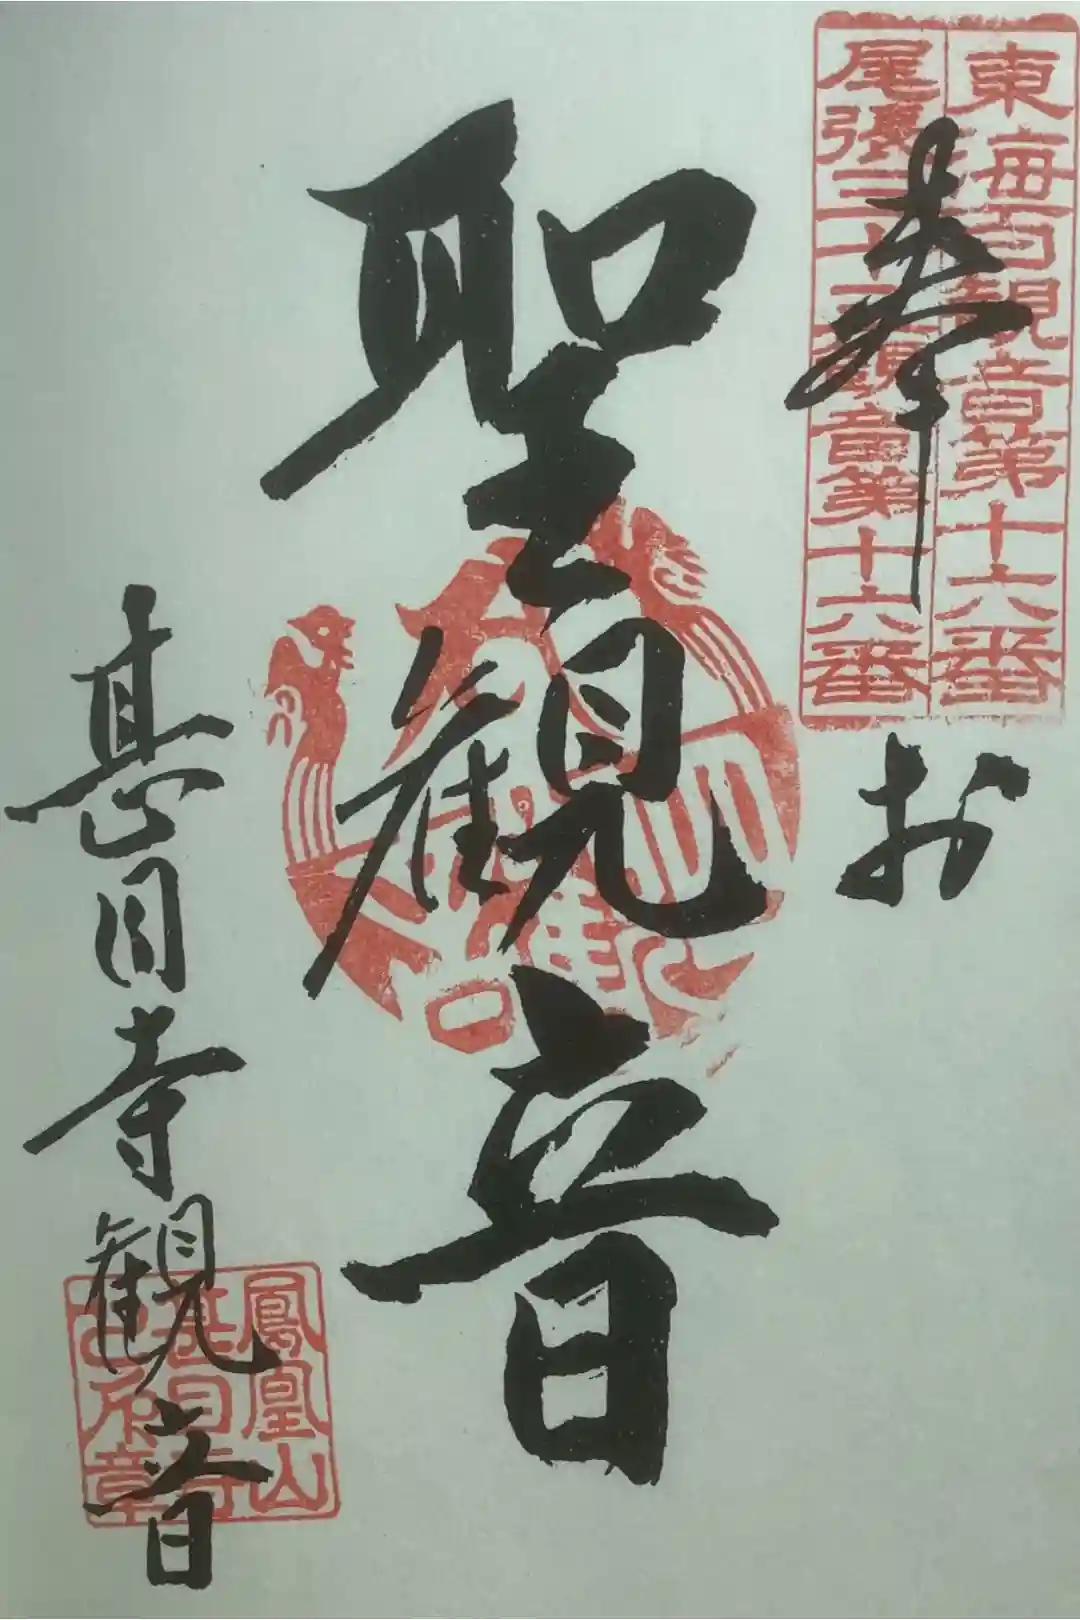 東海百観音第十六番
尾張三十三観音第十六番
奉拝
聖観音
甚目寺観音
鳳凰山
甚目寺
之印章